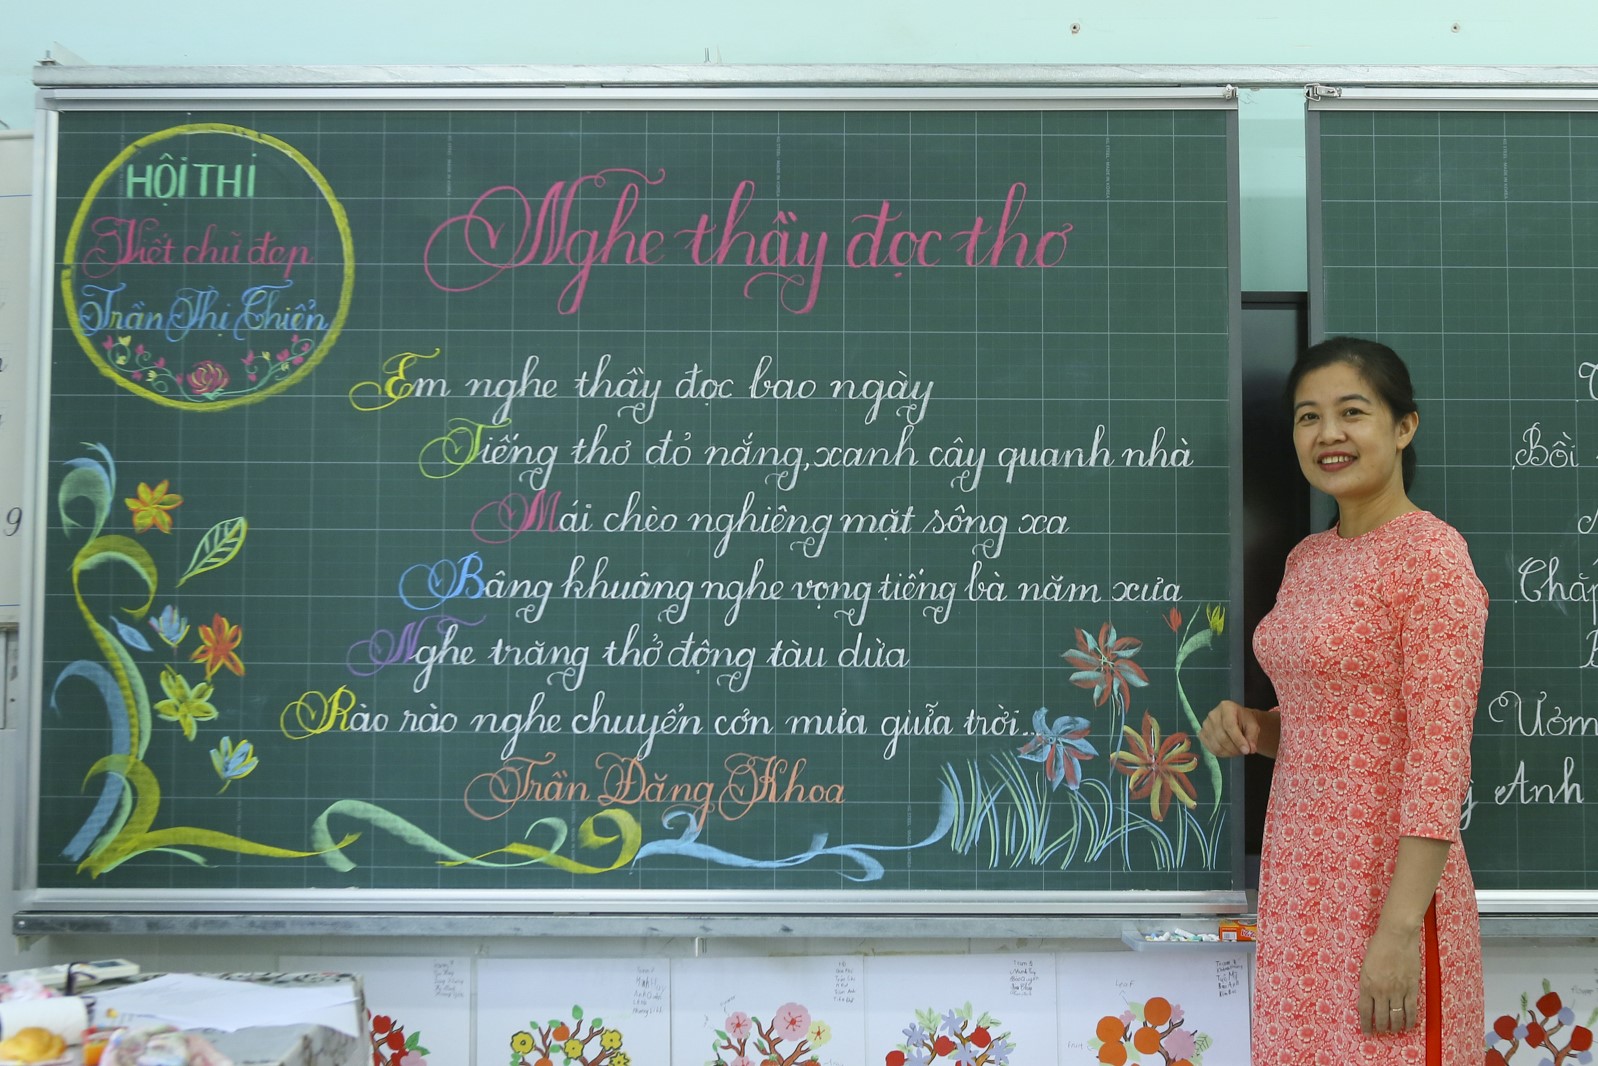 HỘI THI
Viết chữ đẹp
Trần Thị Chiển
Nghe thầy đọc thơ
Em nghe thầy đọc bao ngày
Tiếng thơ đỏ nắng, xanh cây quanh nhà
Mái chèo nghiêng mặt sông xa
Bâng khuâng nghe vọng tiếng bà năm xưa
Nghe trăng thở động tàu dừa
Rào rào nghe chuyển cơn mưa giữa trời...
Trần Đăng Khoa
Bồi
Anh
9
leaf